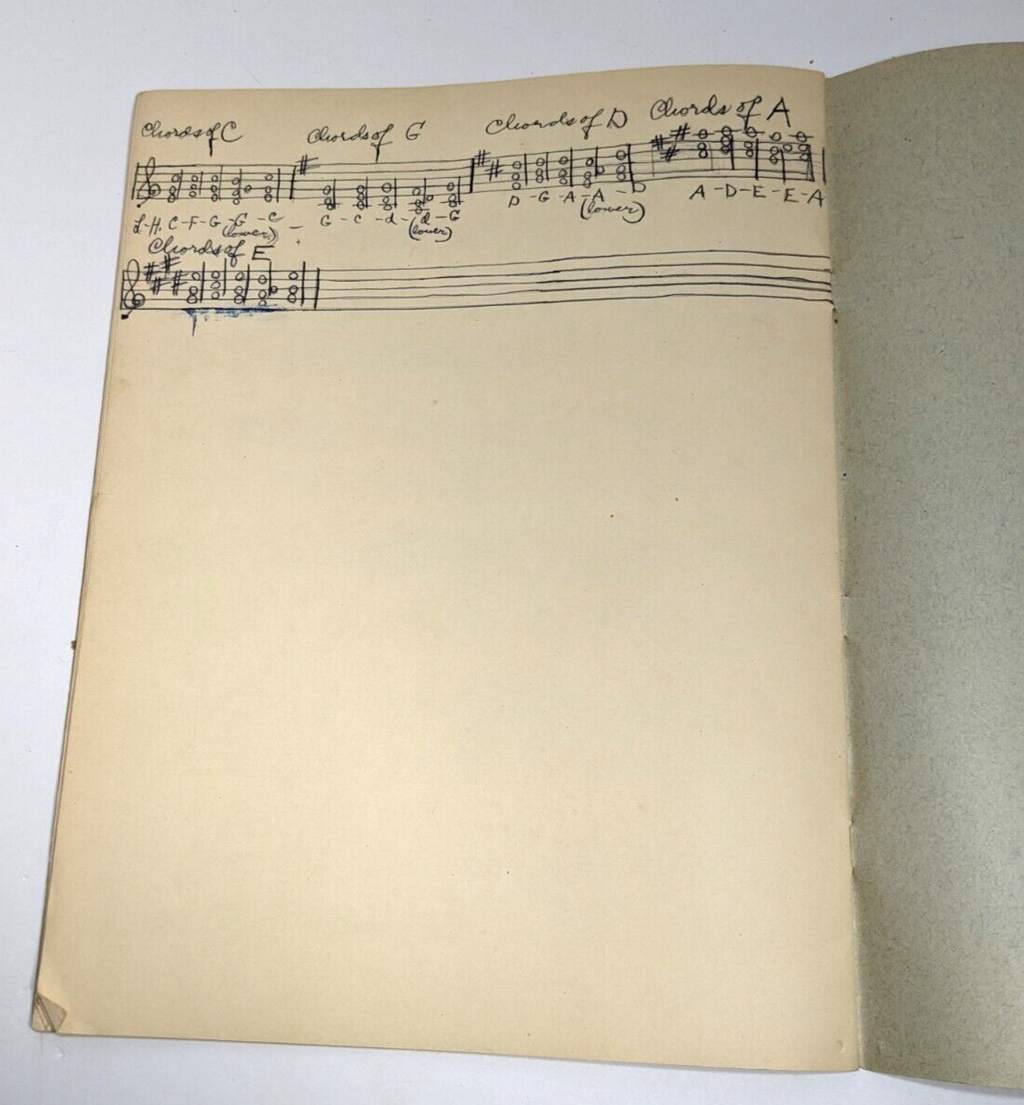 Chords of C Chords of G Chords of D Chords of A
L.H. C-F-G-G-C G-C-d-d-G D-G-A-A-D A-D-E-E-A
(lower) (lower) (lower)
Chords of E